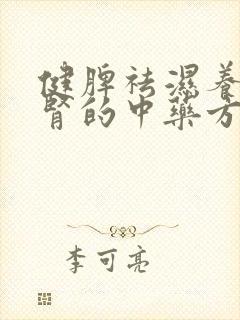 健脾祛濕養
腎的中藥方
李可亮